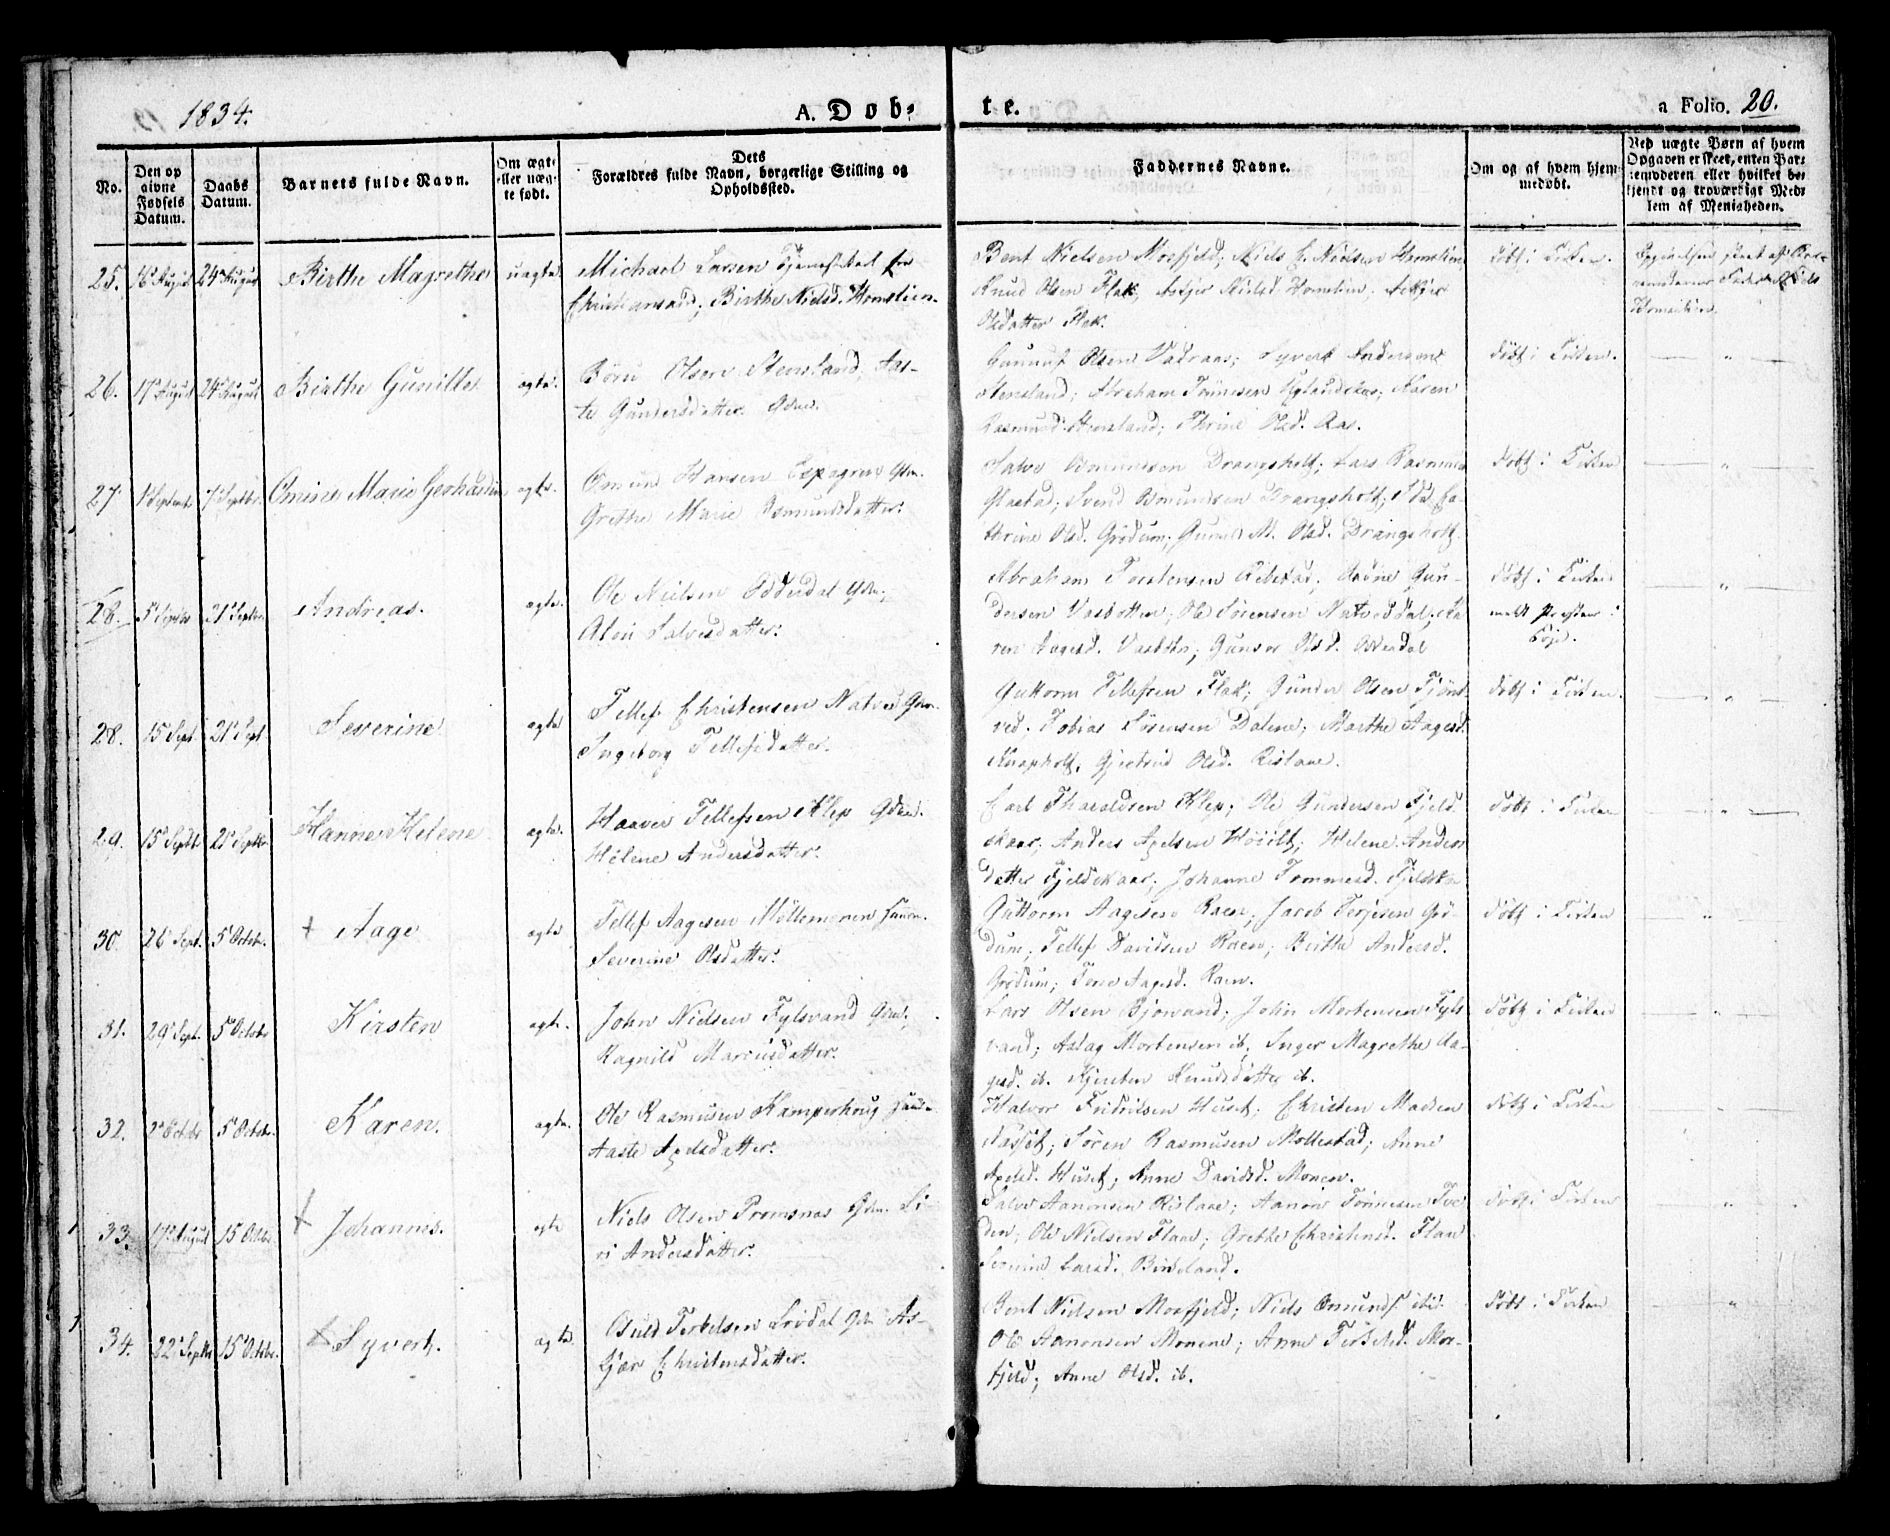 1834.
A. Døb-
te.
a Folio. 20.
No.
Den op
givne
Fødsels
Datum.
Daabs
Datum.
Barnets fulde Navn.
Om ægte
eller uæg-
te født.
Dets
Forældres fulde Navn, borgerlige Stilling og
Opholdssted.
Faddernes Navne.
Om og af hvem hjem-
medøbt.
Ved uægte Børn af hvem
Opgaven er skeet, enten Bar-
nemoderen eller hvilket be-
kjendt og troværdigt Med-
lem af Menigheden.
25. 16 August 24 August Birthe Magrethe uægte
Michael Larsen Tjenestekarl fra
Christiansand; Birthe Nielsd. Homstien.
Bent Nielsen Mosfjeld; Niels C. Nielsen Homstien
Knud Olsen Flak; Nielsd. Homstien;
Olsdatter Flak.
døbt i Kirken.
26. 17 August 24 August Birthe Gunille ægte.
Børu Olsen Stensland Aas-
te Gundersdatter Gdm.
Gunnuf Olsen Vadraas; Syvert Andersen
Stensland; Abraham Tønnesen; Karen
Rasmusd. Stensland; Thrine Olsd. Aas.
døbt i Kirken.
27. 1 Septembr 7 Septbr. Omine Marie Gerhardine ægte.
Omund Hansen Espegren Gdm.
Grethe Marie Osmundsdatter.
Salve Osmundsen Drangsholt; Lars Rasmusen
Glastad; Svend Osmundsen Drangsholt; Ca-
thrine Olsd. Grødum; Gunild M. Olsd. Drangsholt.
døbt i Kirken
28. 5 Septbr 21 Septbr. Andreas. ægte.
Ole Nielsen Odderdal Gdm.
Alvi Salvesdatter.
Abraham Torstensen Rebekaas; Gun-
dersen Vasbotten; Ole Sørensen Natveddal; Ka-
ren Aagesd. Vasbotn; Gunvor Olsd. Odderdal
døbt i Kirken
Præsten
28. 15 Sept. 21 Sept Severine ægte
Tellef Christensen Natved Gdm.
Ingeborg Tellefsdatter.
Guttorm Tellefsen Flak; Gunder Olsen Tjønt-
ved. Tobias Sørensen Dalene; Marthe Aagesd.
Knapholt, Gjertrud Olsd. Rislaae.
døbt i Kirken.
29. 15 Septbr 21 Septbr. Hanne Helene ægte.
Haaver Tellefsen Klep Gdm.
Helene Andersdatter.
Carl Tharaldsen Klep; Ole Gundersen Fjeld-
skaar; Anders Axelsen Høiilt; Helene Anders-
datter Fjeldskaar; Johanne Tommesd. Fjeldsk
døbt i Kirken
30. 26 Sept. 5 Octobr. + Aage ægte
Tellef Aagesen Møllemoren Huusm.
Severine Olsdatter.
Guttorm Aagesen Raen; Jacob Terjesen Grø-
dum; Tellef Davidsen Raen; Birthe Andersd.
Grødum; Tone Aagesd. Raen.
døbt i Kirken
31. 29 Sept. 5 Octobr Kirsten ægte.
John Nielsen Fylsvand Gdm.
Ragnild Marcusdatter.
Lars Olsen Bjorvand; John Mortensen Fyls-
vand; Aslag Mortensen ib. Inger Magrethe Aa-
gesd. ib. Kjersten Knudsdatter ib.
døbt i Kirken
32. 2 Octobr 5 Octobr. Karen. ægte.
Ole Rasmusen Kamperhoug Huusm
Aaste Axelsdatter.
Halvor Fridrilsen Huset; Christen Madsen
Næsset; Søren Rasmusen Mollestad; Anne
Axelsd. Huset; Anne Davidsd. Monen.
døbt i Kirken
33. 17 August 15 Octbr + Johannes. ægte
Niels Olsen Tromsnes Gdm. Si-
ri Andersdatter.
Salve Aanonsen Rislaae; Aanon Tønnesen Tve-
den; Ole Nielsen Flaae; Grethe Christensd. Flaae
Larsd. Birkeland.
døbt i Kirken
34. 22 Septbr 15 Octobr. + Syvert. ægte
Osuld Terkelsen Livdal Gdm As-
kjær Christensdatter.
Bent Nielsen Mosfjeld; Niels Omunds. ibid.
Ole Aanonsen Monene; Anne Terkelsd. Mos-
fjeld; Anne Olsd. ib.
døbt i Kirken